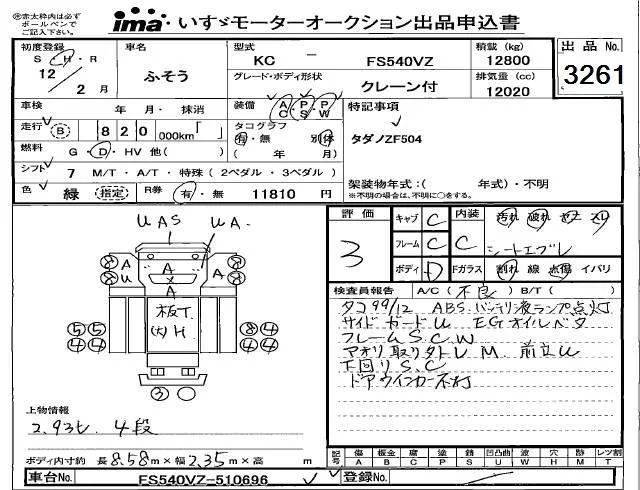 ㊟赤太枠内は必ず
ボールペンで
ご記入下さい。
ima いすゞモーターオークション出品申込書
初度登録
S H R
12 / 2 月
車名
ふそう
型式
KC － FS540VZ
積載 (kg)
12800
出品 No.
3261
グレード・ボディ形状
クレーン付
排気量 (cc)
12020
車検 年 月・ 抹消
装備 A C P S P W
特記事項
走行 B 820 000km「 」
タコグラフ
有・無 別体
( 年 月)
タダノZF504
燃料 G・D・HV 他( )
シフト 7 M/T・A/T・特殊 (2ペダル・3ペダル)
架装物年式:( 年式)・不明
※不明の場合は、不明に○をする。
色 緑 (指定) R券 有・無 11810 円
UAS UA.
A A A A
U A U
板T
(大)H
5 5 8 4
4 4 4 4
3
評価
3
キャブ C 内装 汚れ 破れ
フレーム C C シート
ボディ D Fガラス 割れ 線 点傷 イバリ
検査員報告 A/C (不良) B/T( )
タコ99/12 ABS.バッテリ液ランプ点灯
サイドガードU EGオイルベタ
フレームS.C.W
アオリ取り外しU M. 前立U
下回りS.C
ドアウインカー不灯
上物情報
2.93t. 4段
ボディ内寸約 長 8.58 m × 幅 2.35 m × 高 m
記号 傷 板金 腐 塗 錆 凹凸曲 波 穴 跡 レツ割
A B C P S U W H M T
車台No. FS540VZ-510696
登録No.